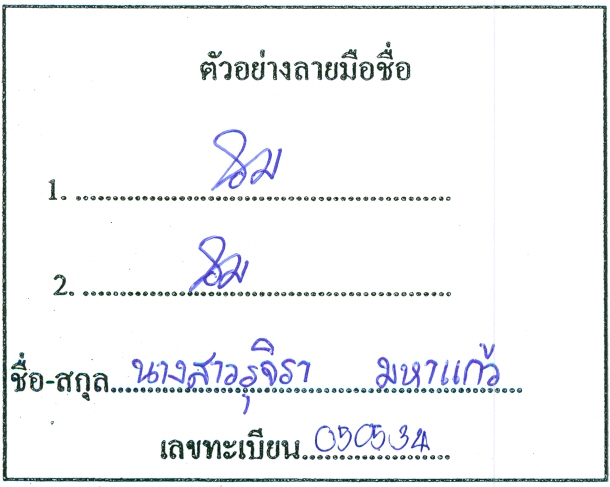 ตัวอย่างลายมือชื่อ
1. ................................................
2. ................................................
ชื่อ-สกุล นางสาวรุจิรา มหาแก้ว
เลขทะเบียน 050534